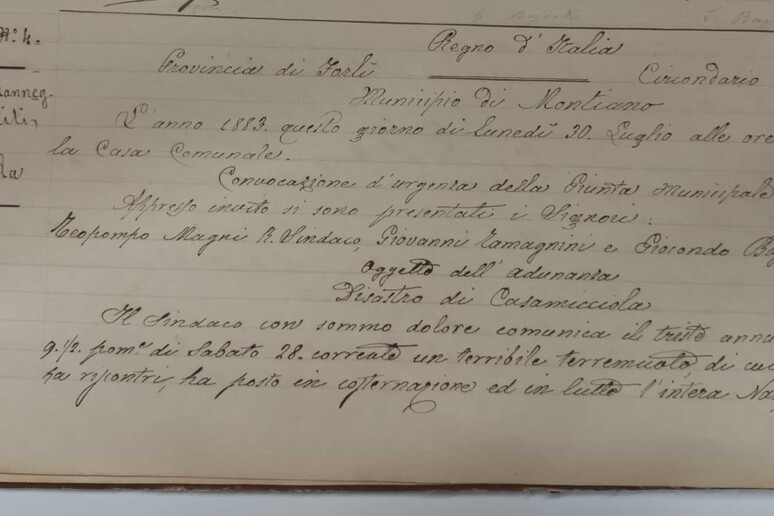 N.º 4.
Regno d'Italia
Provincia di Forlì Circondario
Municipio di Montiano
L'anno 1883. questo giorno di Lunedì 30. Luglio alle ore
la Casa Comunale.
Convocazione d'urgenza della Giunta Municipale
Appresso invito si sono presentati i Signori:
Teopompo Magni R. Sindaco, Giovanni Tamagnini e Giocondo Ba
Oggetto dell'adunanza
Disastro di Casamicciola
Il Sindaco con sommo dolore comunica il triste annu
9.1/2. pom.e di Sabato 28. corrente un terribile terremuoto, di cui
ha riscontri, ha posto in costernazione ed in lutto l'intera Na